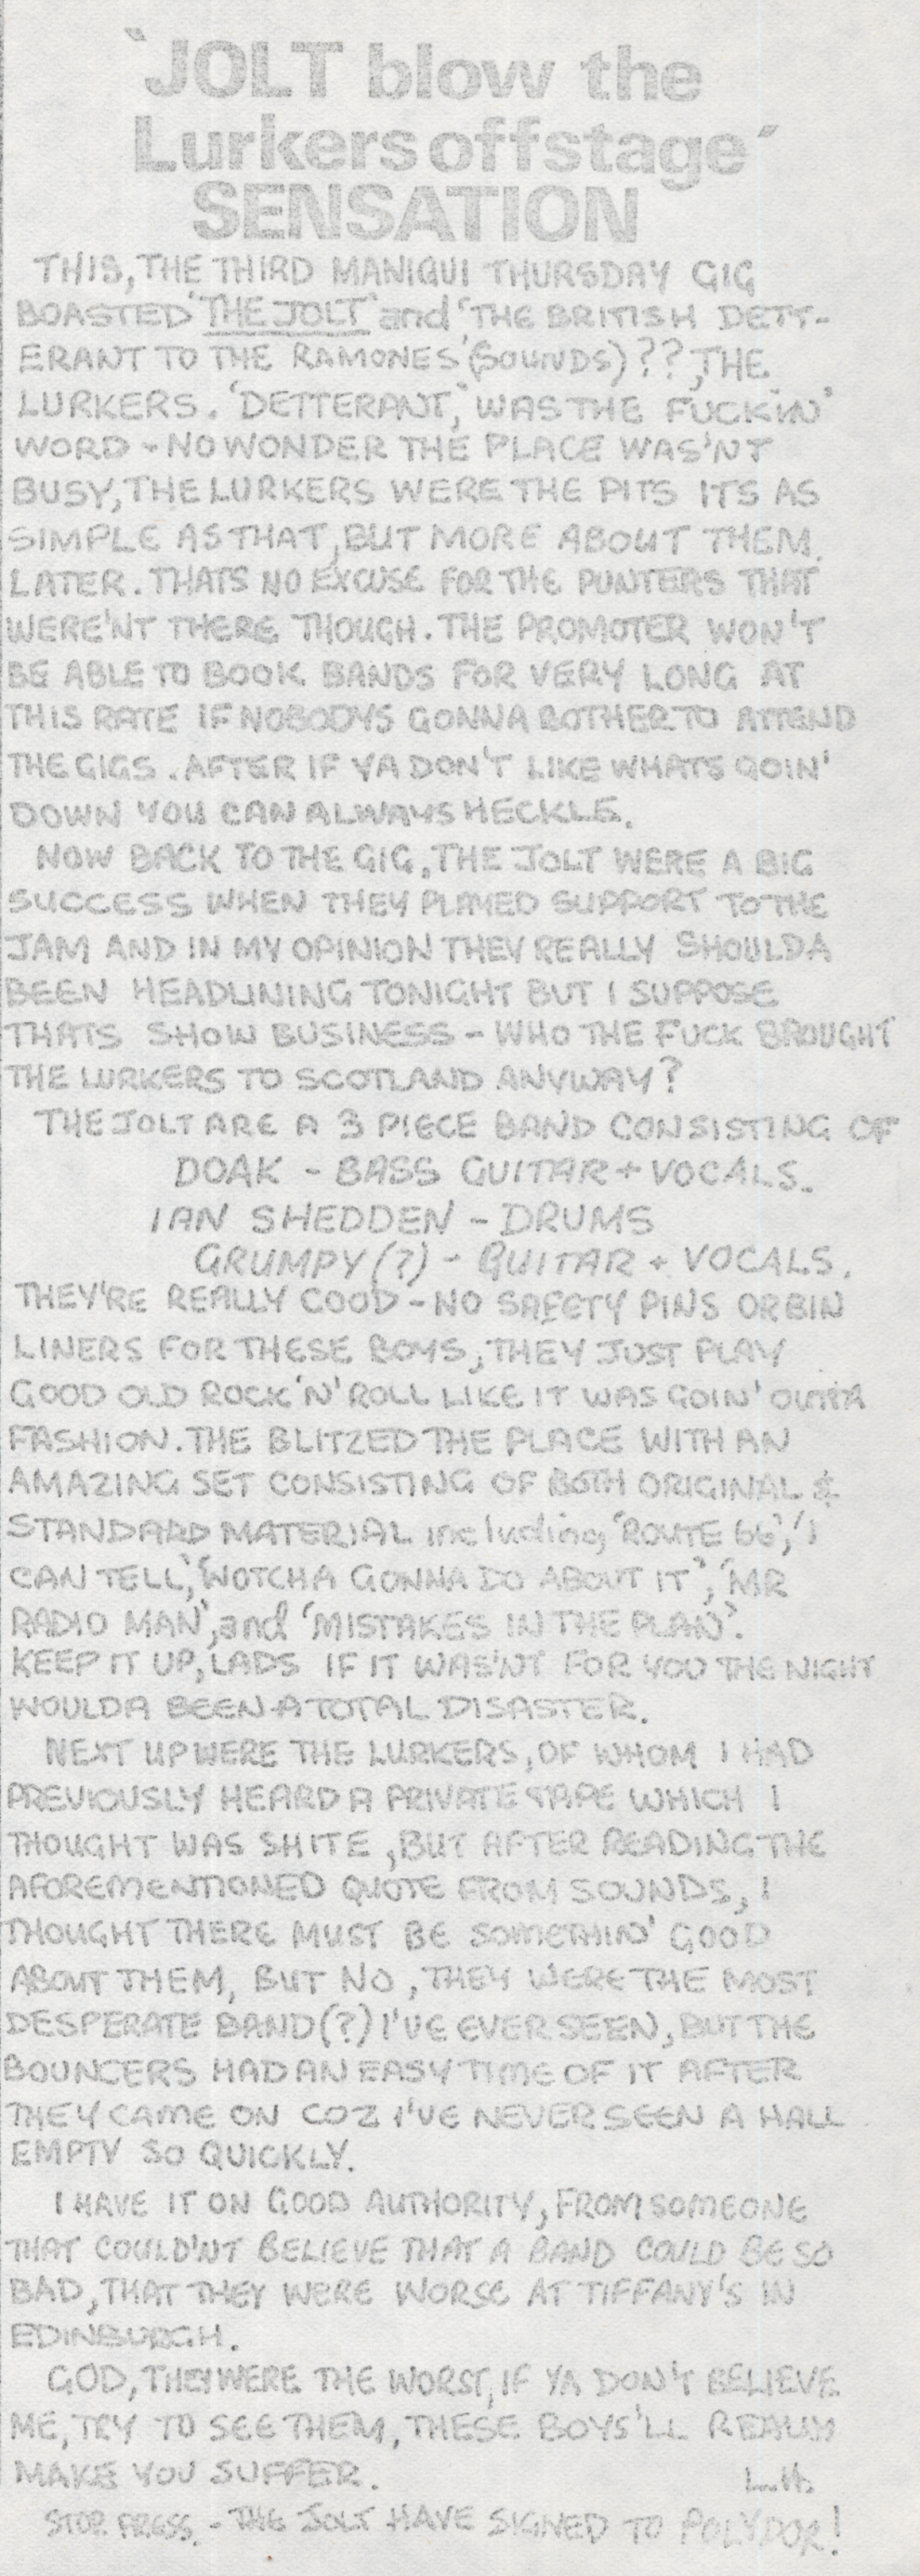 ‘JOLT blow the
Lurkers offstage’
SENSATION
THIS, THE THIRD MANIQUI THURSDAY GIG
BOASTED 'THE JOLT' and 'THE BRITISH DETT-
ERANT TO THE RAMONES' (SOUNDS)??, THE
LURKERS. 'DETTERANT,' WAS THE FUCKIN'
WORD - NO WONDER THE PLACE WAS'NT
BUSY, THE LURKERS WERE THE PITS ITS AS
SIMPLE AS THAT, BUT MORE ABOUT THEM
LATER. THATS NO EXCUSE FOR THE PUNTERS THAT
WERE'NT THERE THOUGH. THE PROMOTER WON'T
BE ABLE TO BOOK BANDS FOR VERY LONG AT
THIS RATE IF NOBODYS GONNA BOTHER TO ATTEND
THE GIGS. AFTER IF YA DON'T LIKE WHATS GOIN'
DOWN YOU CAN ALWAYS HECKLE.
NOW BACK TO THE GIG, THE JOLT WERE A BIG
SUCCESS WHEN THEY PLAYED SUPPORT TO THE
JAM AND IN MY OPINION THEY REALLY SHOULDA
BEEN HEADLINING TONIGHT BUT I SUPPOSE
THATS SHOW BUSINESS - WHO THE FUCK BROUGHT
THE LURKERS TO SCOTLAND ANYWAY?
THE JOLT ARE A 3 PIECE BAND CONSISTING OF
DOAK - BASS GUITAR + VOCALS.
IAN SHEDDEN - DRUMS
GRUMPY (?) - GUITAR + VOCALS.
THEY'RE REALLY GOOD - NO SAFETY PINS OR BIN
LINERS FOR THESE BOYS, THEY JUST PLAY
GOOD OLD ROCK 'N' ROLL LIKE IT WAS GOIN' OUTTA
FASHION. THE BLITZED THE PLACE WITH AN
AMAZING SET CONSISTING OF BOTH ORIGINAL &
STANDARD MATERIAL including 'ROUTE 66', 'I
CAN TELL', 'WOTCHA GONNA DO ABOUT IT', 'MR
RADIO MAN', and 'MISTAKES IN THE PLAN'.
KEEP IT UP, LADS IF IT WAS'NT FOR YOU THE NIGHT
WOULDA BEEN A TOTAL DISASTER.
NEXT UP WERE THE LURKERS, OF WHOM I HAD
PREVIOUSLY HEARD A PRIVATE TAPE WHICH I
THOUGHT WAS SHITE, BUT AFTER READING THE
AFOREMENTIONED QUOTE FROM SOUNDS, I
THOUGHT THERE MUST BE SOMETHIN' GOOD
ABOUT THEM, BUT NO, THEY WERE THE MOST
DESPERATE BAND(?) I'VE EVER SEEN, BUT THE
BOUNCERS HAD AN EASY TIME OF IT AFTER
THEY CAME ON COZ I'VE NEVER SEEN A HALL
EMPTY SO QUICKLY.
I HAVE IT ON GOOD AUTHORITY, FROM SOMEONE
THAT COULD'NT BELIEVE THAT A BAND COULD BE SO
BAD, THAT THEY WERE WORSE AT TIFFANY'S IN
EDINBURGH.
GOD, THEY WERE THE WORST, IF YA DON'T BELIEVE
ME, TRY TO SEE THEM, THESE BOYS'LL REALLY
MAKE YOU SUFFER. L.H.
STOP PRESS. - THE JOLT HAVE SIGNED TO POLYDOR!